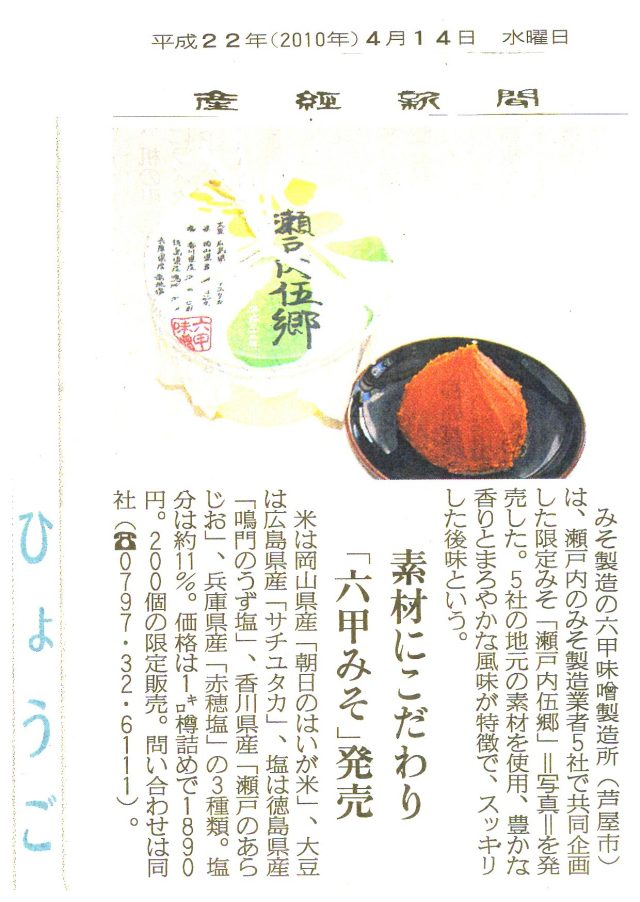 平成22年(2010年)4月14日 水曜日
産經新聞
瀬戸内伍郷
六甲味噌
ひょうご
素材にこだわり
「六甲みそ」発売
みそ製造の六甲味噌製造所（芦屋市）
は、瀬戸内のみそ製造業者5社で共同企画
した限定みそ「瀬戸内伍郷」＝写真＝を発
売した。5社の地元の素材を使用、豊かな
香りとまろやかな風味が特徴で、スッキリ
した後味という。
米は岡山県産「朝日のはいが米」、大豆
は広島県産「サチユタカ」、塩は徳島県産
「鳴門のうず塩」、香川県産「瀬戸のあら
じお」、兵庫県産「赤穂塩」の3種類。塩
分は約11％。価格は1㌔樽詰めで1890
円。200個の限定販売。問い合わせは同
社（☎0797・32・6111）。